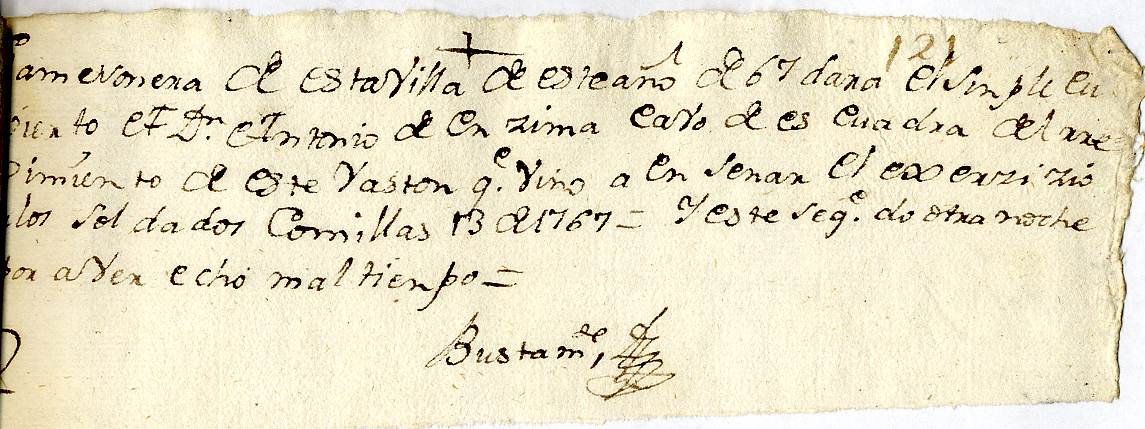 121
La mesonera de esta Villa de este año de 67 dara el simple cu
vierto a Dn Antonio de Enzima cavo de escuadra del rre
Dimiento de este Vaston q.e vino a ensenar el exerzizio
a los soldados Comillas 13 de 1767 = Y este se q.e do otra noche
por aver echo mal tienpo =
Bustam.te